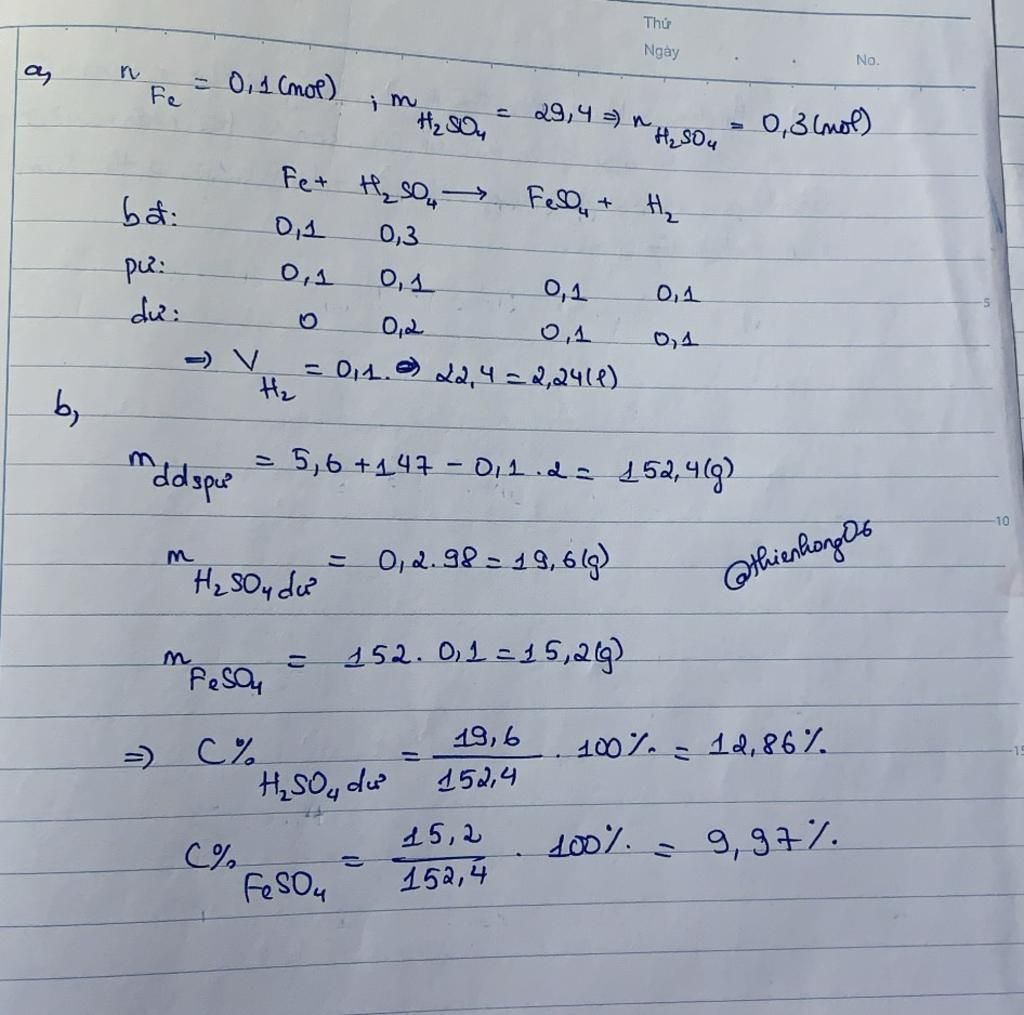 Thứ
Ngày
No.
a, n Fe = 0,1 (mol) ; m H₂SO₄ = 29,4 ⇒ n H₂SO₄ = 0,3 (mol)
Fe + H₂SO₄ → FeSO₄ + H₂
bđ: 0,1 0,3
pư: 0,1 0,1 0,1 0,1
dư: 0 0,2 0,1 0,1
⇒ V H₂ = 0,1 . 22,4 = 2,24 (l)
b,
m ddspư = 5,6 + 147 - 0,1 . 2 = 152,4 (g)
m H₂SO₄ dư = 0,2 . 98 = 19,6 (g)
@thienhong06
m FeSO₄ = 152 . 0,1 = 15,2 (g)
⇒ C% H₂SO₄ dư = 19,6 / 152,4 . 100% = 12,86%
C% FeSO₄ = 15,2 / 152,4 . 100% = 9,97%
5
10
15